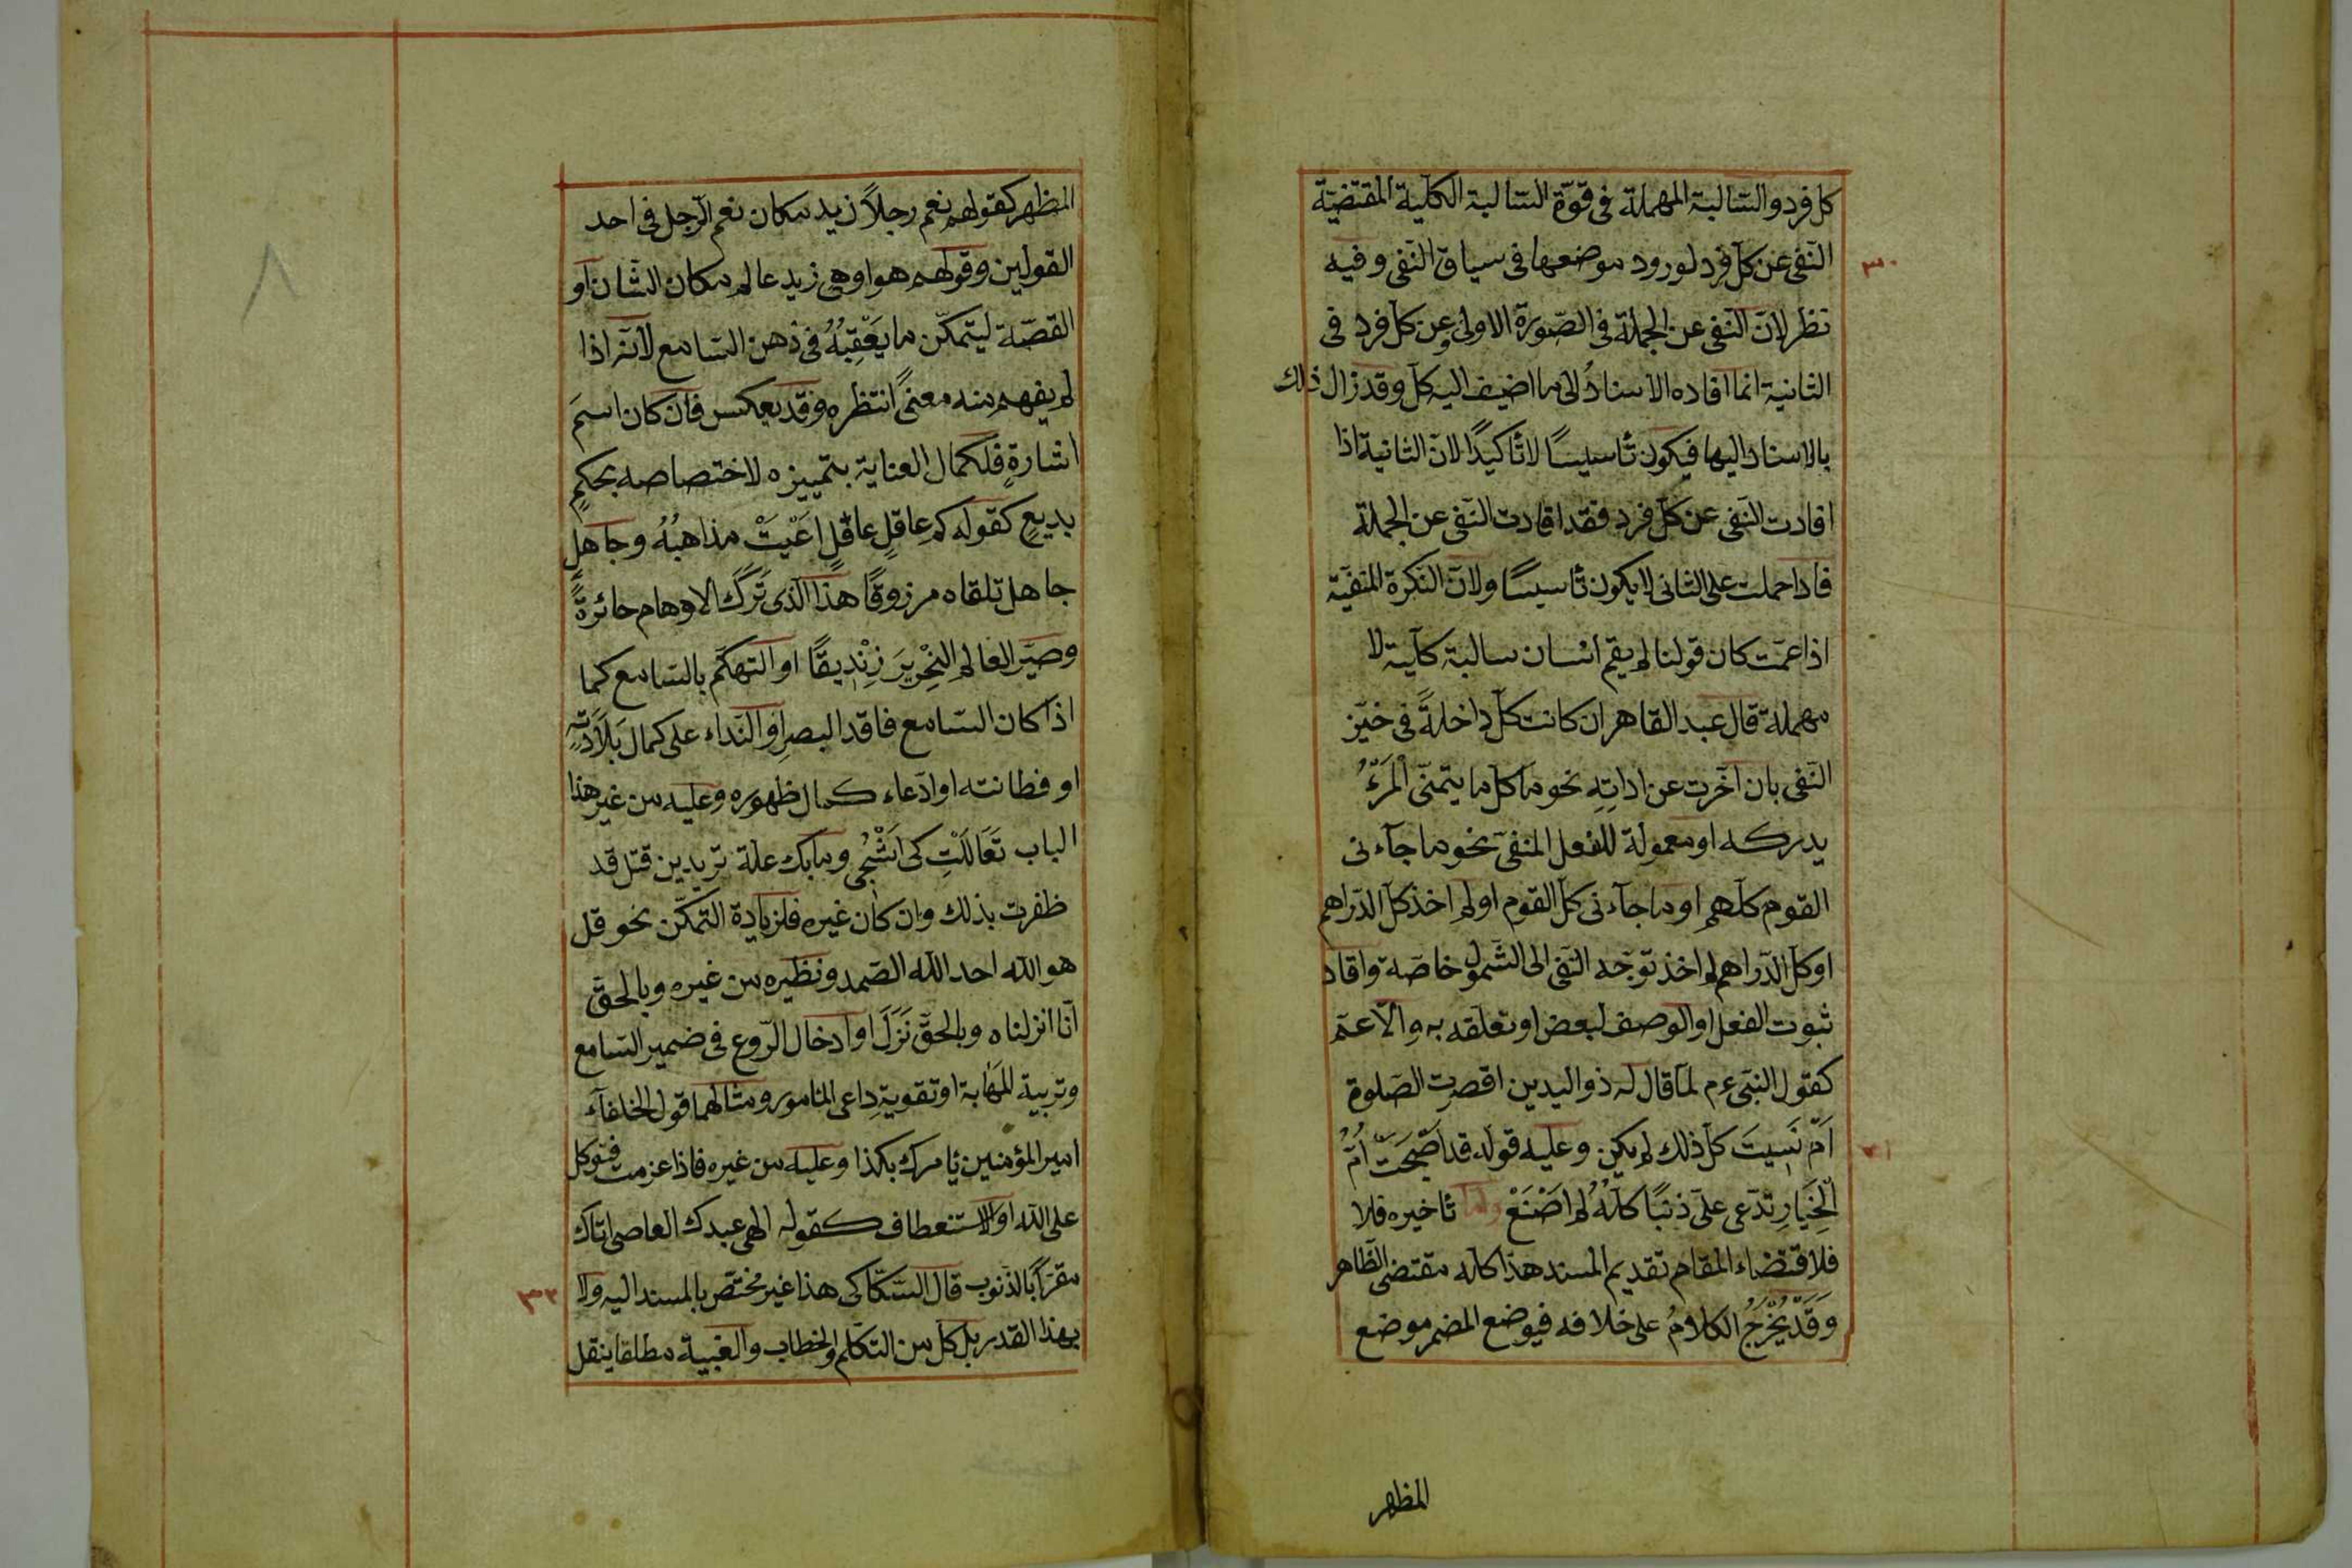 كل فرد والسّالبة المهملة فى قوّة السّالبة الكلّية المقتضيّة
النّفى عن كلّ فرد لورود موضعها فى سياق النّفى وفيه
٣٠
نظر لانّ النّفى عن الجملة فى الصّورة الاولى وعن كلّ فرد فى
الثانية انما افاده الاسنادُ الى ما اضيف اليه كلّ وقد زال ذلك
بالاسناد اليها فيكون تأسيسًا لا تأكيدًا لانّ الثانية اذا
افادت النّفى عن كلّ فرد فقد افادت النّفى عن الجملة
فاذا حملت على الثانى لا يكون تأسيسًا ولانّ النّكرة المنفيّة
اذا عمّت كان قولنا لم يقم انسان سالبة كلّية لا
مهملة قال عبد القاهر ان كانت كلّ داخلةً فى حيّز
النّفى بان اخّرت عن اداتِهِ نحو ما كلّ ما يتمنّى اْلمَرْءُ
يدركه او معمولة للفعل المنفىّ نحو ما جآءنى
القوم كلّهم او ما جآءنى كلّ القوم او لم اخذ كلّ الدّراهم
او كلّ الدّراهم لم اخذ توجّه النّفى الى الشّمول خاصّة وافاد
ثبوت الفعل او الوصف لبعض او تعلّقه به والّا عمّ
كقول النبىّ عم لمّا قال له ذو اليدين اقصرت الصّلوة
اَمْ نَسِيتَ كلّ ذلك لم يكن وعليه قوله قد اَصْبَحَتْ اُمُّ
٣١
الْخِيَارِ تدّعى علىّ ذنبًا كلّهُ لم اصْنَعْ وامّا تأخيره فلا
فلاقتضاء المقام تقديم المسند هذا كلّه مقتضى الظّاهر
وَقَدْ يُخْرَجُ الكلامُ على خلافه فيوضع المضمر موضع
المظهر
المظهر كقولهم نعم رجلاً زيد مكان نعم الرّجل فى احد
القولين وقولهم هو او هى زيد عالم مكان الشّان او
القصّة ليتمكّن ما يَعْقِبُهُ فى ذهن السّامع لانّه اذا
لم يفهم منه معنىً انتظره وقد يعكس فان كان اسمَ
اشارةٍ فلكمال العناية بتمييزه لاختصاصه بحكمٍ
بديعٍ كقوله كم عاقلٍ عاقلٍ اعْيَتْ مذاهبُهُ وجاهلٍ
جاهل تلقاه مرزوقًا هذا الّذى تَرَكَ الاوهام حائرةً
وصيّر العالم النِحْرِيرَ زِنْدِيقًا او التّهكّم بالسّامع كما
اذا كان السّامع فاقد البصر او النّداء على كمال بَلَادَتِهِ
او فطانته او ادّعاء كمال ظهوره وعليه من غير هذا
الباب تَعَالَلْتِ كى اَشْجٰى وما بك علّة تريدين قتلى قد
ظفرت بذلك وان كان غيره فلزيادة التّمكّن نحو قل
هو الله احد الله الصّمد ونظيره من غيره وبالحقّ
انّا انزلناه وبالحقّ نَزَلَ او ادخال الرّوع فى ضمير السّامع
وتربية المَهَابة او تقوية داعى المأمور ومثالهما قول الخلفآء
امير المؤمنين يأمرك بكذا وعليه من غيره فاذا عزمت فتوكل
على الله او الاستعطاف كقوله الهى عبدك العاصى اتاك
مقرّا بالذّنوب قال السّكّاكى هذا غير مختصّ بالمسند اليه ولا
٣٢
بهذا القدر بل كلّ من التكلّم والخطاب والغيبة مطلقا ينقل
٨